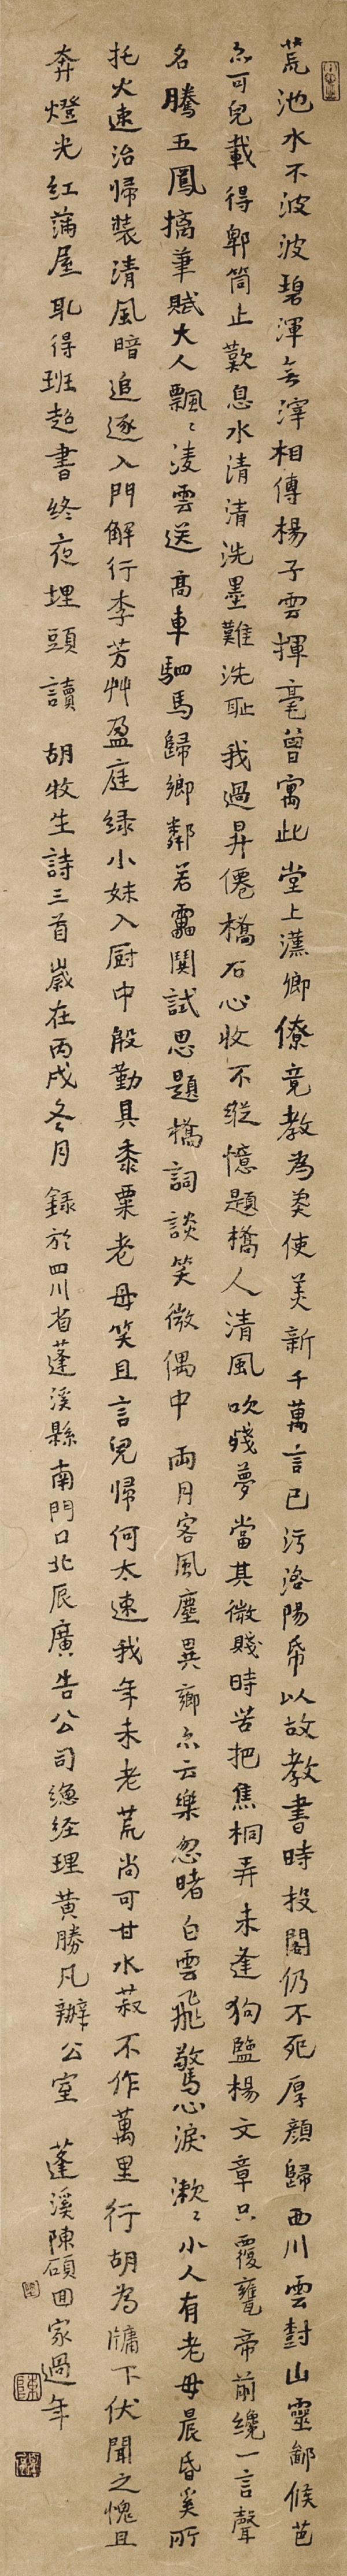 荒池水不波波碧渾無滓相傳楊子雲揮毫曾寓此堂上漢卿僚竟教為莽使美新千萬言已污洛陽紙以故教書時投閣仍不死厚顏歸西川雲封山靈鄙候芭
亦可兒載得郫筒止歎息水清清洗墨難洗恥我過昇僊橋石心收不縱憶題橋人清風吹殘夢當其微賤時苦把焦桐弄未逢狗監楊文章只覆甕帝前纔一言聲
名騰五鳳摛筆賦大人飄飄淩雲送高車駟馬歸鄉鄰若靁鬨試思題橋詞談笑微偶中兩月客風塵異鄉亦云樂忽睹白雲飛驚心淚漱漱小人有老母晨昏奚所
托火速治歸裝清風暗追逐入門解行李芳艸盈庭绿小妹入厨中殷勤具黍粟老母笑且言兒歸何太速我年未老荒尚可甘水菽不作萬里行胡為牖下伏聞之愧且
奔燈光红滿屋恥得班超書終夜埋頭讀 胡牧生詩三首歲在丙戌冬月錄於四川省蓬溪縣南門口北辰廣告公司總经理黄勝凡辦公室 蓬溪陳碩回家過年